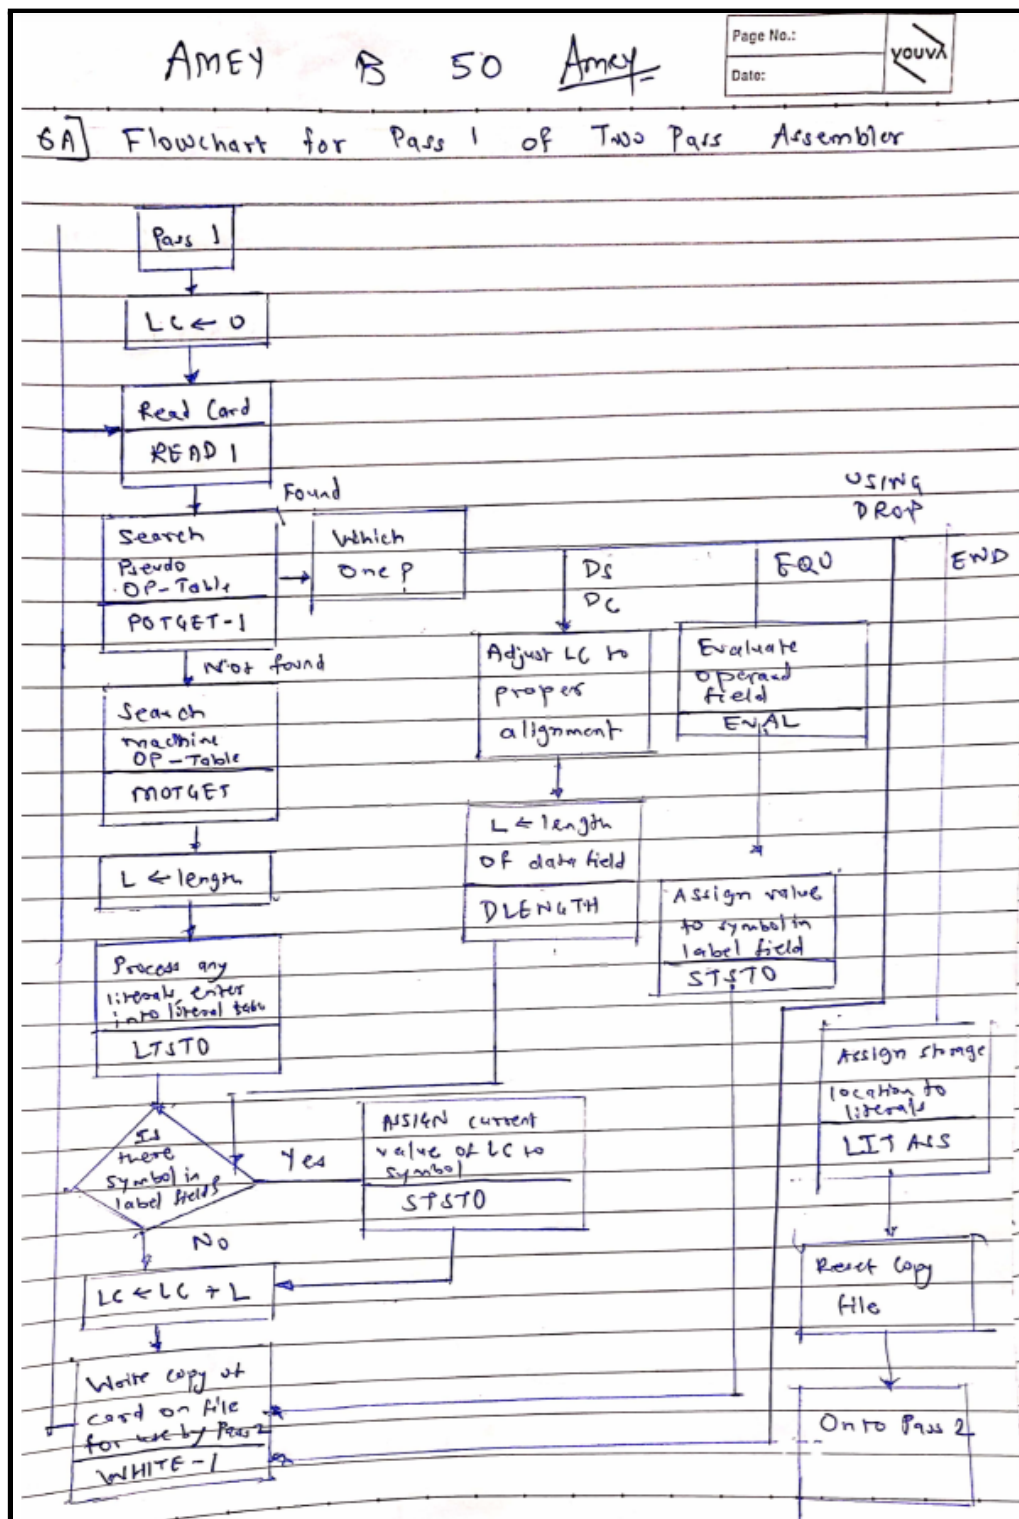 AMEY B 50 Amey
Page No.:
Date:
YOUVA
6A] Flowchart for Pass 1 of Two Pass Assembler
Pass 1
LC ← 0
Read Card
READ 1
Found
Search
Pseudo
OP-Table
POTGET-1
Which
One?
USING
DROP
DS
DC
EQU
END
Not found
Search
machine
OP-Table
MOTGET
Adjust LC to
proper
alignment
Evaluate
operand
field
EVAL
L ← length
L ← length
of data field
DLENGTH
Assign value
to symbol in
label field
STSTO
Process any
literals, enter
into literal
LTSTO
Assign storage
location to
literals
LITASS
Is
there
symbol in
label field?
Yes
ASSIGN current
value of LC to
symbol
STSTO
No
LC ← LC + L
Reset Copy
file
Write copy of
card on file
for use by Pass 2
WHITE-1
Onto Pass 2